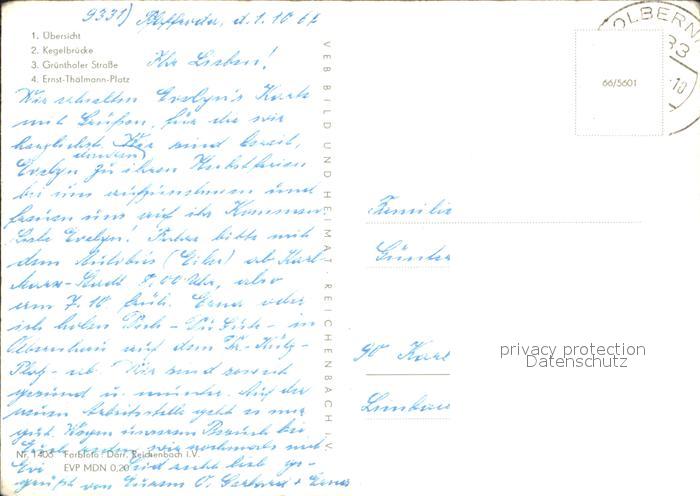 9331) Pfaffroda, d. 1.10.67
1. Übersicht
2. Kegelbrücke
3. Grünthaler Straße
4. Ernst-Thälmann-Platz
Ihr Lieben!
Wir erhielten Evelyn's Karte
mit Grüßen, für die wir
herzlichst danken. Wir sind bereit,
Evelyn zu ihren Herbstferien
bei uns aufzunehmen und
freuen uns auf ihr Kommen.
Liebe Evelyn! Fahre bitte mit
dem Autobus (Eilbus) ab Karl-
Marx-Stadt 8.00 Uhr, also
am 7.10 früh. Erna oder
ich holen Dich - Du Gute - in
Olbernhau auf dem Dr.-Külz-
Platz - ab. Wir sind soweit
gesund u. munter. Auf der
neuen Arbeitsstelle geht es mir
gut. Wegen unserem Besuch bei
Euch reden wir nochmals mit
Evi. Seid recht lieb ge-
grüßt von Eurem O. Gerhard + Erna
Nr. 1405 Farbfoto: Darr, Reichenbach i.V.
EVP MDN 0,20
VEB BILD UND HEIMAT · REICHENBACH I.V.
OLBERNH
933
66/5601
Familie
Günter
90 Karl
Limbac
privacy protection
Datenschutz